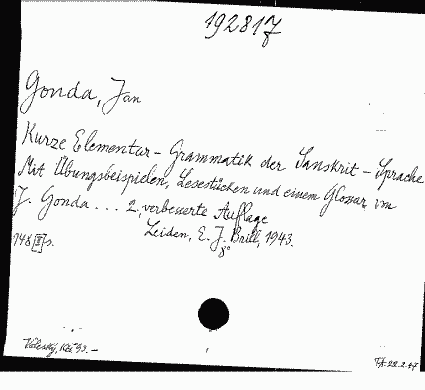 192817
Gonda, Jan
Kurze Elementar-Grammatik der Sanskrit-Sprache
Mit Übungsbeispielen, Lesestücken und einem Glossar von
J. Gonda ... 2, verbesserte Auflage
Leiden, E. J. Brill, 1943.
148 [II] s. 8°
22.2.47